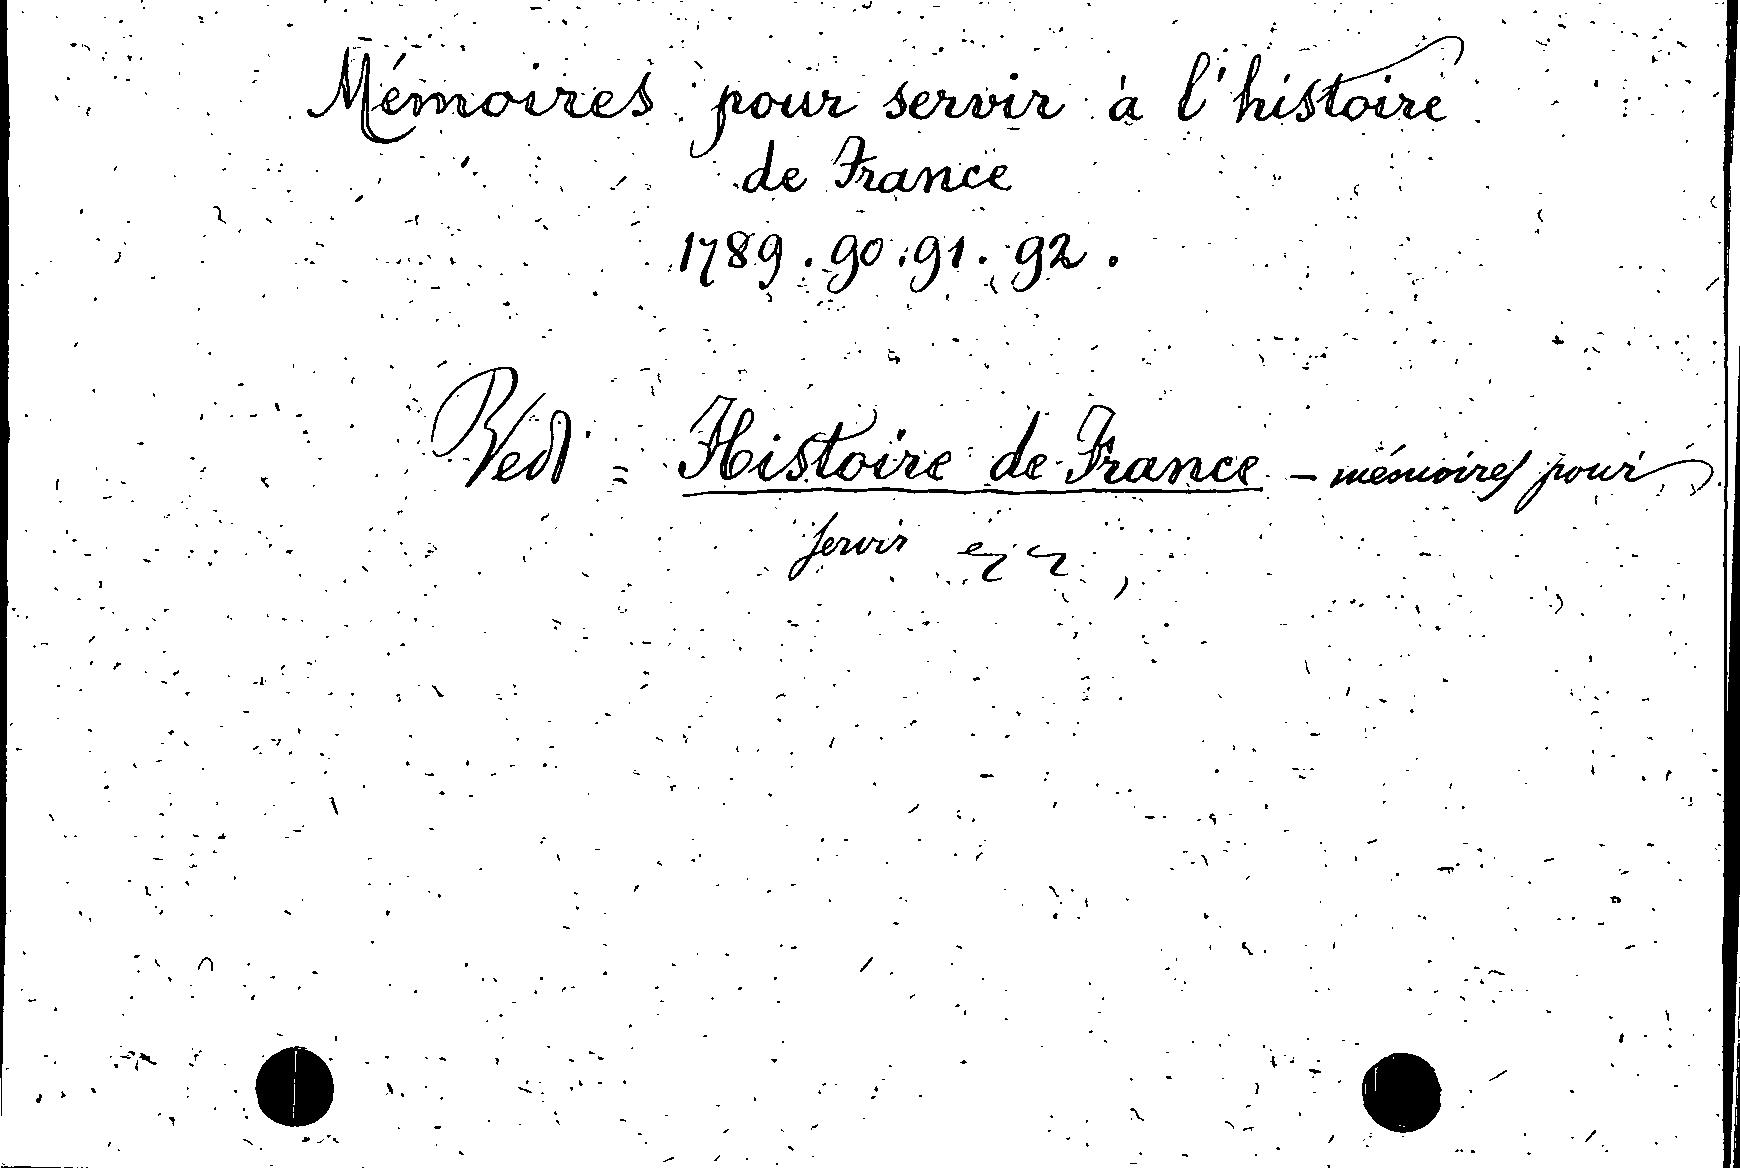 Mémoires pour servir à l'histoire
de France
1789. 90. 91. 92.
Vedi = Histoire de France - mémoires pour
servir